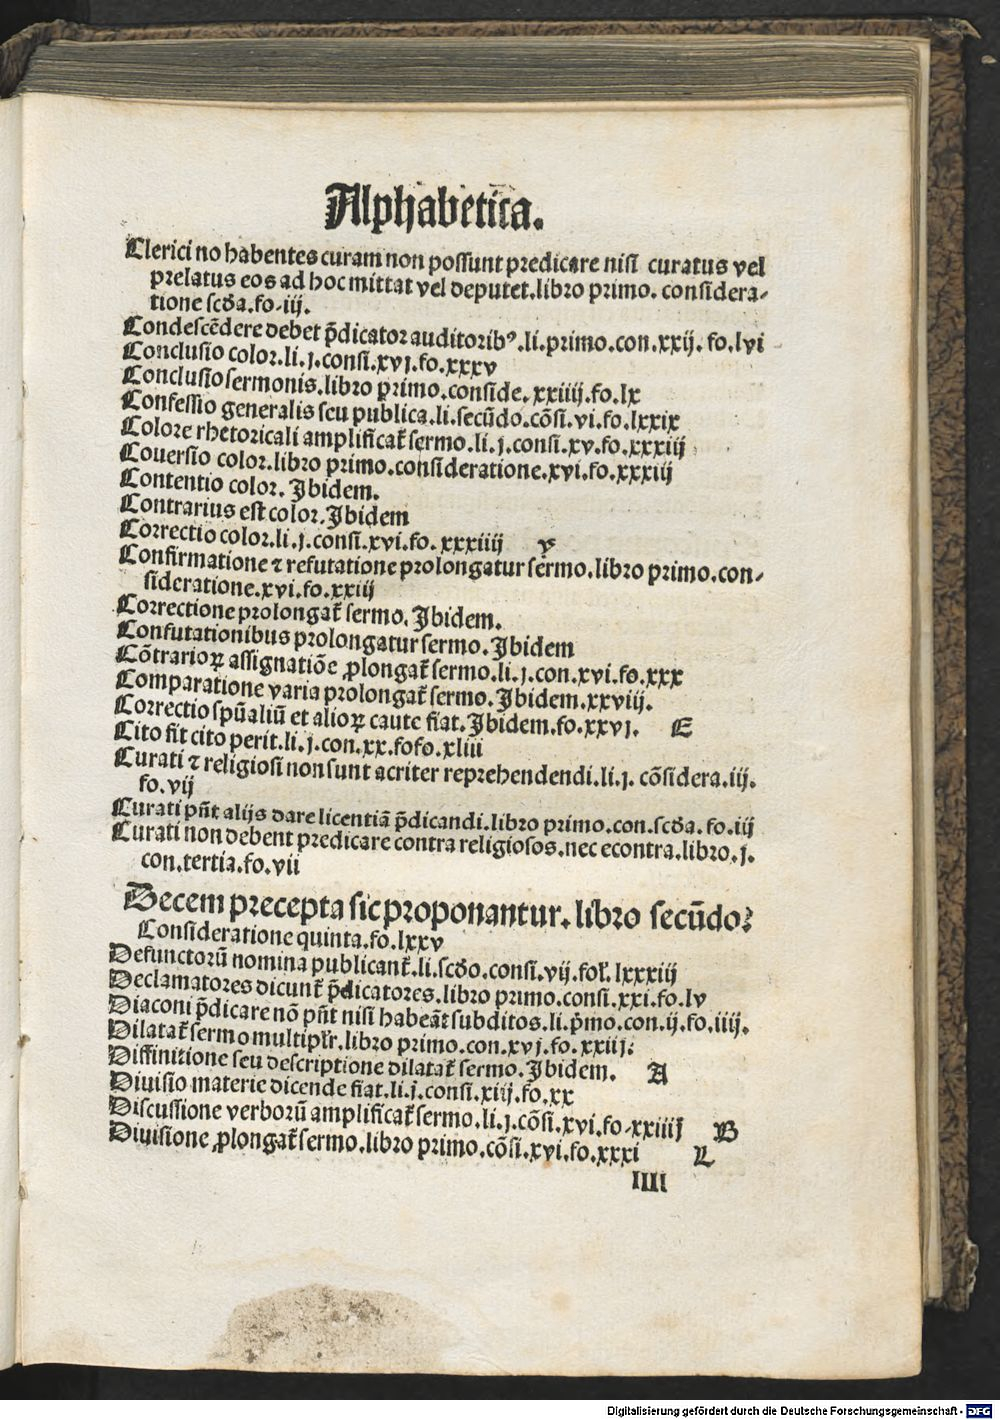 Alphabetica.
Clerici no habentes curam non possunt predicare nisi curatus vel
prelatus eos ad hoc mittat vel deputet.libro primo. considera-
tione scd̄a.fo.iij.
Condescēdere debet p̄dicator auditoribꝰ.li.primo.con.xxij. fo.lvi
Conclusio color.li.j.consi.xvj.fo.xxxv
Conclusio sermonis.libro primo.conside.xxiiij.fo.lx
Confessio generalis seu publica.li.secūdo.cōsi.vi.fo.lxxix
Colore rhetoricali amplificat̄ sermo.li.j.consi.xv.fo.xxxiij
Couersio color.libro primo.consideratione.xvi.fo.xxxiij
Contentio color. Ibidem.
Contrarius est color.Ibidem
Correctio color.li.j.consi.xvi.fo.xxxiiij v
Confirmatione ⁊ refutatione prolongatur sermo.libro primo.con-
sideratione.xvi.fo.xxiij
Correctione prolongat̄ sermo. Ibidem.
Confutationibus prolongatur sermo.Ibidem
Cōtrarioꝝ assignatiōe ꝓlongat̄ sermo.li.j.con.xvi.fo.xxx
Comparatione varia prolongat̄ sermo.Ibidem.xxviij.
Correctio spūaliū et alioꝝ caute fiat.Ibidem.fo.xxvj. E
Cito fit cito perit.li.j.con.xx.fofo.xliii
Curati ⁊ religiosi non sunt acriter reprehendendi.li.j. cōsidera.iij.
fo.vij
Curati pn̄t alijs dare licentiā p̄dicandi.libro primo.con.scd̄a.fo.iij
Curati non debent predicare contra religiosos.nec econtra.libro.j.
con.tertia.fo.vii
Decem precepta sic proponantur.libro secūdo?
Consideratione quinta.fo.lxxv
Defunctorū nomina publicant̄.li.scd̄o.consi.vij.fol̄.lxxxiij
Declamatores dicunt̄ p̄dicatores.libro primo.consi.xxi.fo.lv
Diaconi p̄dicare nō pn̄t nisi habeāt subditos.li.p̄mo.con.ij.fo.iiij.
Dilatat̄ sermo multipl̄r.libro primo.con.xvj.fo.xxiij.
Diffinitione seu descriptione dilatat̄ sermo.Ibidem. A
Diuisio materie dicende fiat.li.j.consi.xiij.fo.xx
Discussione verborū amplificat̄ sermo.li.j.cōsi.xvi.fo.xxiiij B
Diuisione ꝓlongat̄ sermo.libro primo.cōsi.xvi.fo.xxxi L
IIII
Digitalisierung gefördert durch die Deutsche Forschungsgemeinschaft - DFG